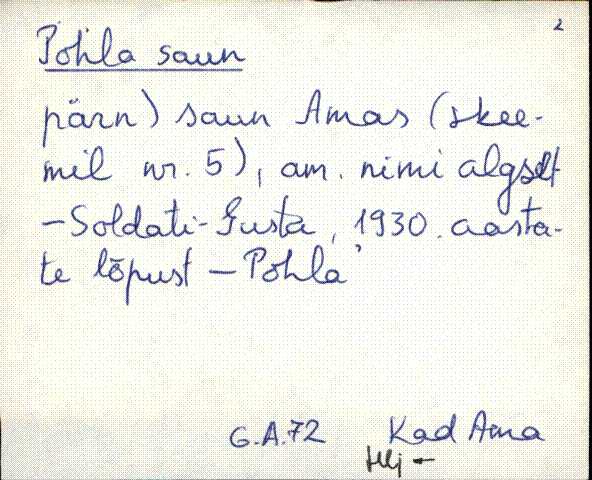 2
Pohla saun
pärn) saun Amas (skee-
mil nr. 5), am. nimi algselt
- Soldati-Gusta, 1930. aasta-
te lõpust - Pohla
G.A.72 Kad Ama
Hlj -